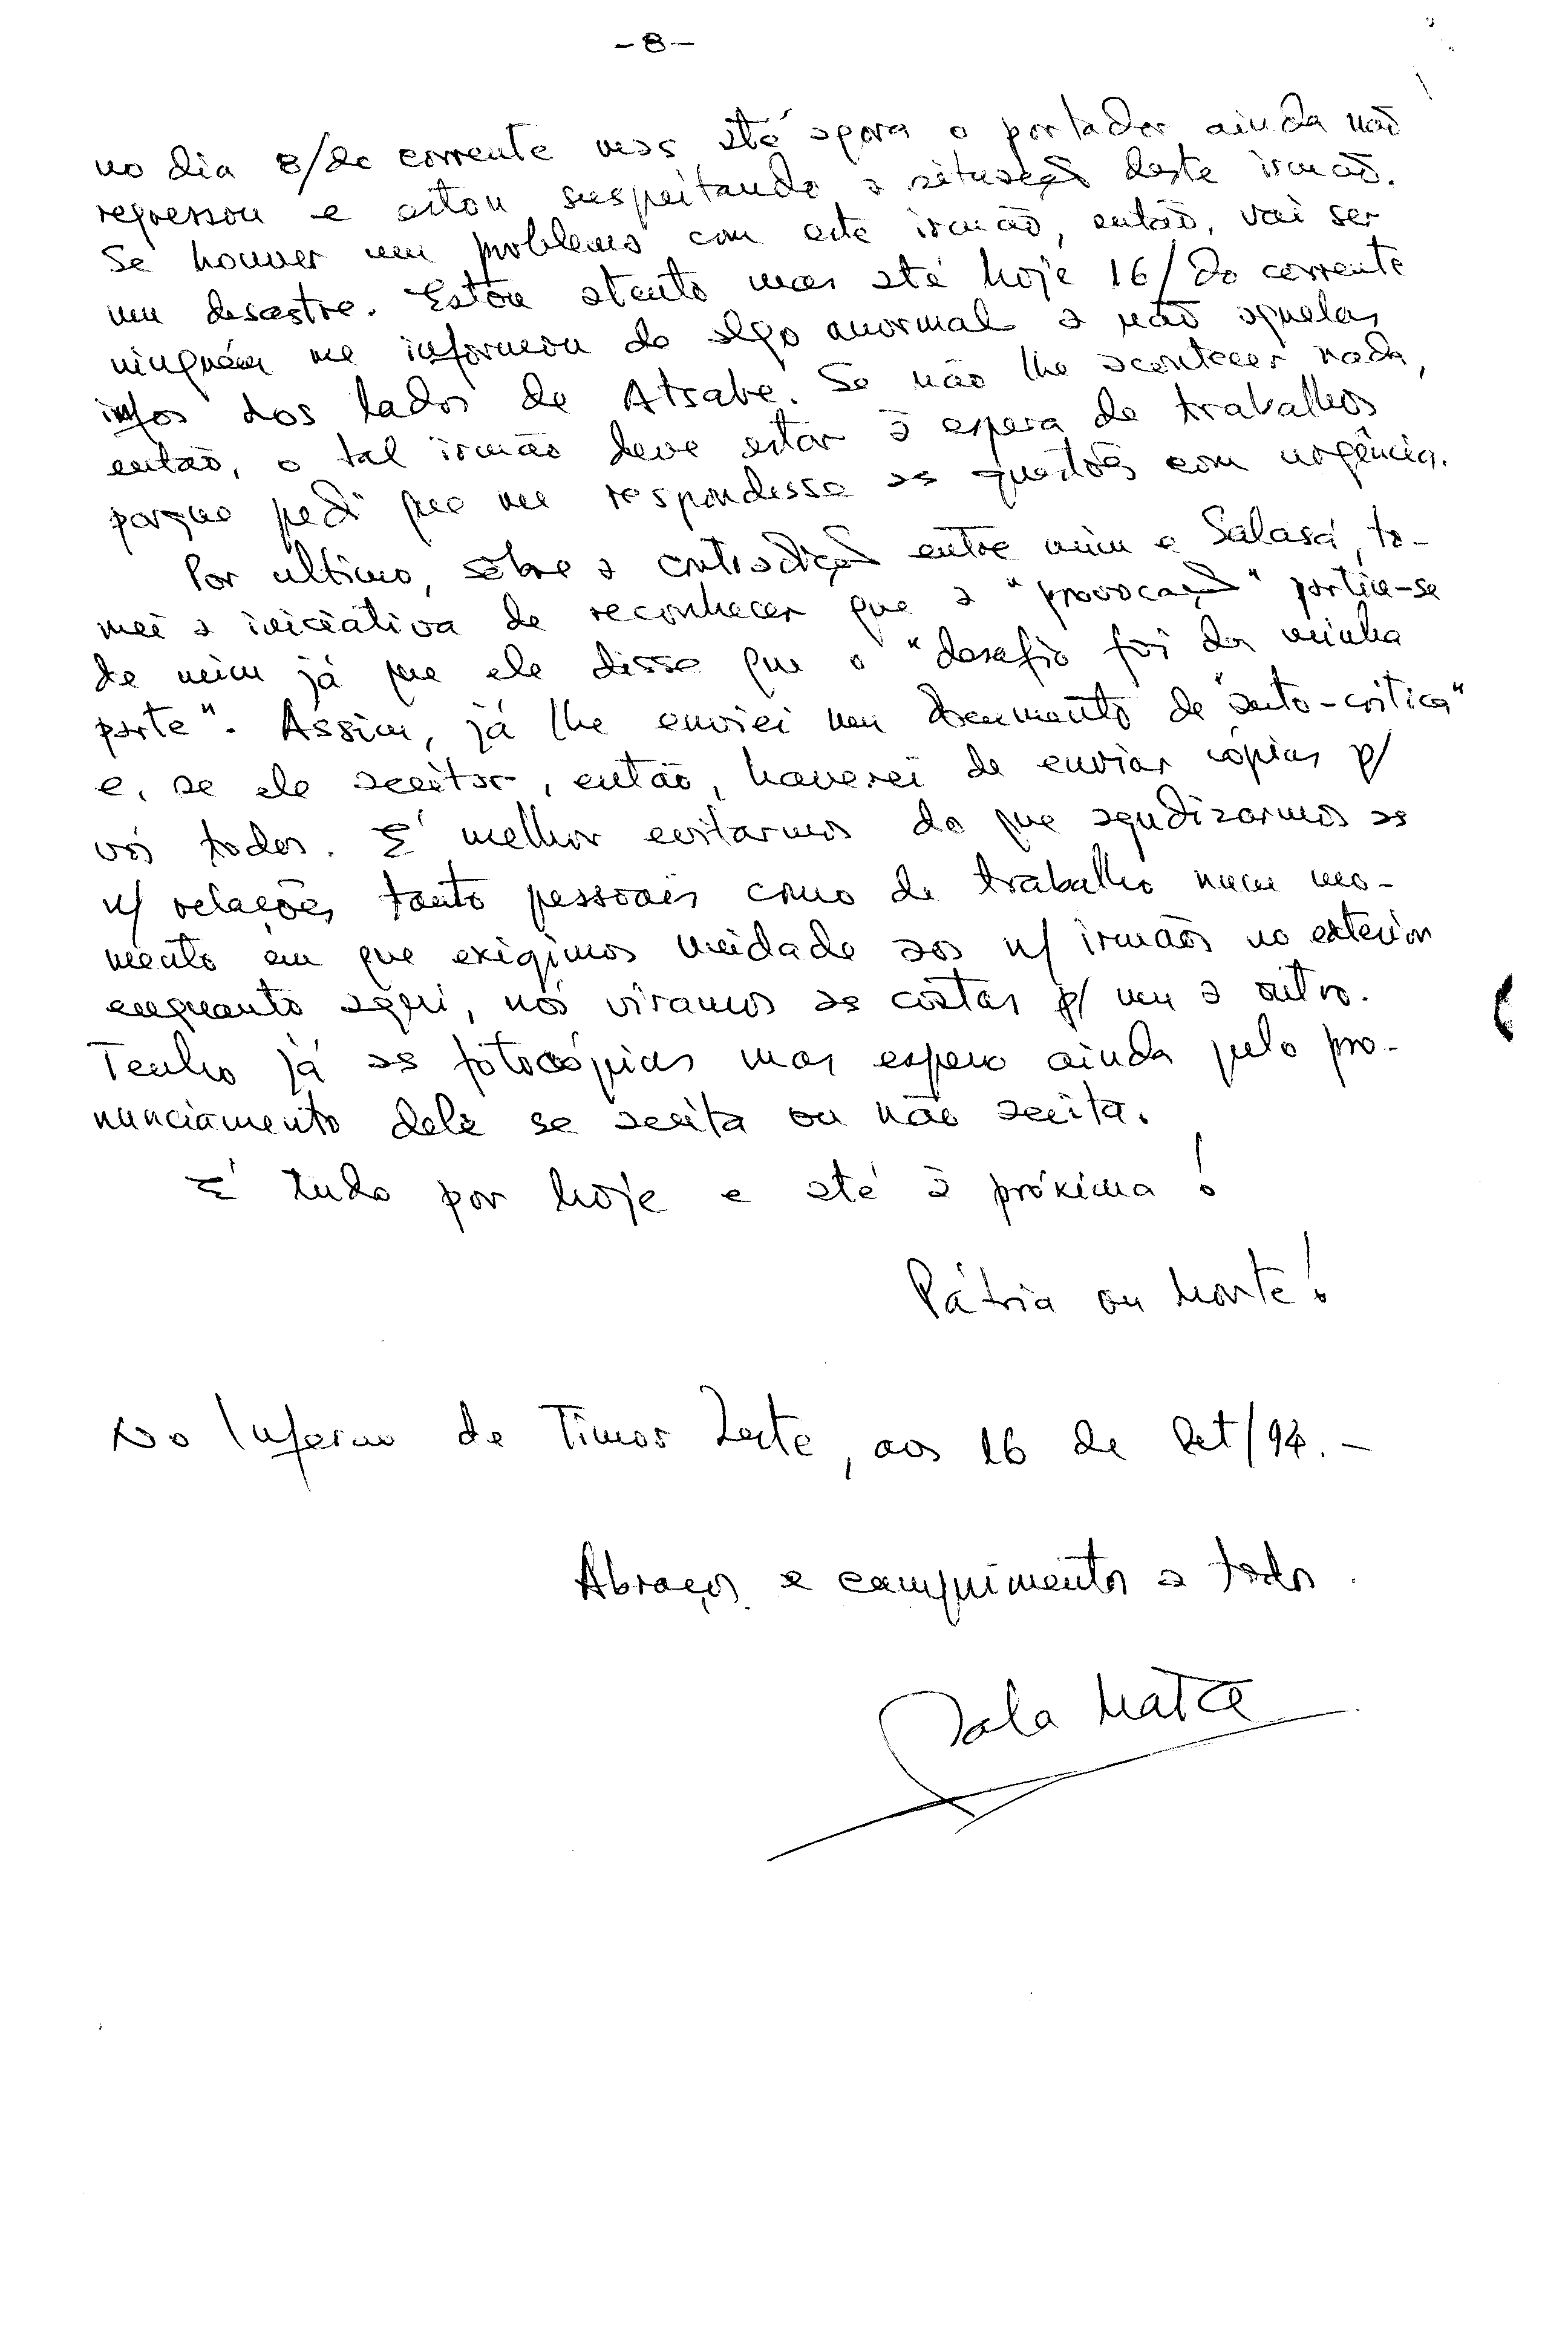 -8-
no dia 8/do corrente mas até agora o portador ainda não
regressou e estou suspeitando a situação deste irmão.
Se houver um problema com este irmão, então, vai ser
um desastre. Estou atento mas até hoje 16/do corrente
ninguém me informou de algo anormal a não aquelas
infos dos lados de Atsabe. Se não lhe acontecer nada,
então, o tal irmão deve estar à espera de trabalhos
porque pedi que me respondesse as questões com urgência.
Por último, sobre a contradição entre mim e Salasá, to-
mei a iniciativa de reconhecer que a "provocação" partiu-se
de mim já que ele disse que o "desafio foi da minha
parte". Assim, já lhe enviei um documento de "auto-crítica"
e, se ele aceitar, então, haverei de enviar cópias p/
vós todos. É melhor evitarmos do que agudizarmos as
n/ relações tanto pessoais como de trabalho num mo-
mento em que exigimos unidade aos n/ irmãos no exterior
enquanto aqui, nós viramos as costas p/ um a outro.
Tenho já as fotocópias mas espero ainda pelo pro-
nunciamento dele se aceita ou não aceita.
É tudo por hoje e até à próxima!
Pátria ou Morte!
No Inferno de Timor Leste, aos 16 de Set/94.-
Abraços e cumprimentos a todos.